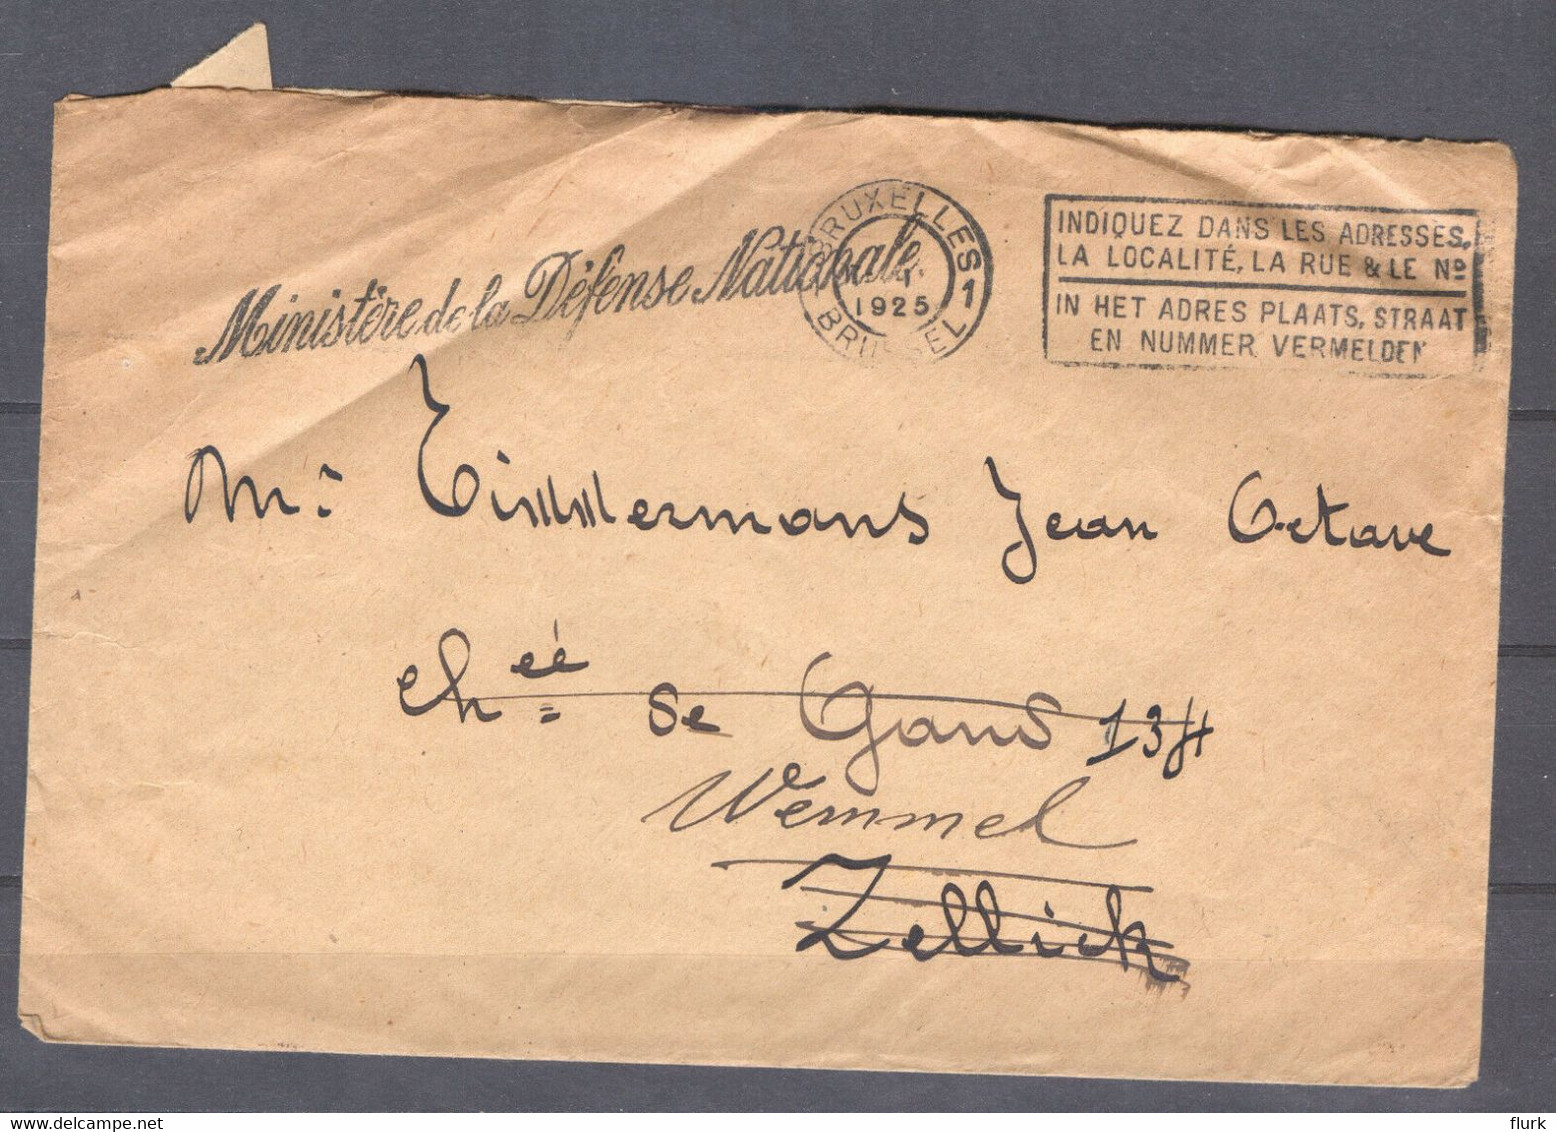 Ministère de la Défense Nationale
BRUXELLES 1
1925
BRUSSEL
INDIQUEZ DANS LES ADRESSES,
LA LOCALITÉ, LA RUE & LE Nº
IN HET ADRES PLAATS, STRAAT
EN NUMMER VERMELDEN
Mr Timmermans Jean Octave
Chéé de Gand 134
Wemmel
Zellick
flurk